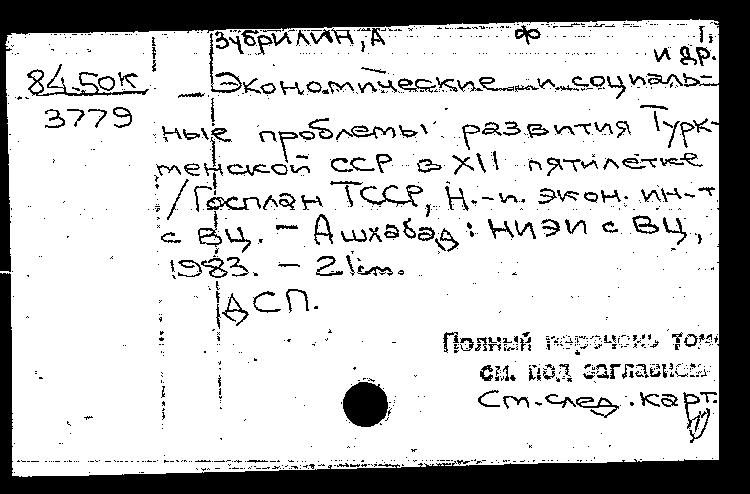 Зубрилин, А Ф Г.
и др.
84.50К Экономические и социаль-
3779
ные проблемы развития Турк-
менской ССР в XII пятилетке
/ Госплан ТССР, Н.-и. экон. ин-т
с ВЦ. - Ашхабад : НИЭИ с ВЦ,
1983. - 21 см.
ДСП.
Полный перечень томо
см. под заглавием
См. след. карт.